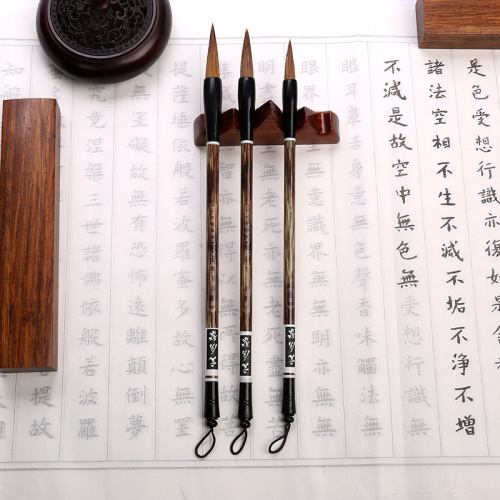 是色受想行識亦復如是
諸法空相不生不滅不垢不淨不增
不減是故空中無色無受想行識無
眼耳鼻舌身意無色聲香味觸法無
眼界無意識界無
明盡無老死亦無老死盡
集智亦無得以無所得故
提薩埵依般若波羅蜜多故心無罣
無罣礙故無有恐怖遠離顛倒夢
究竟涅般三世諸佛依般若波羅
知般提故